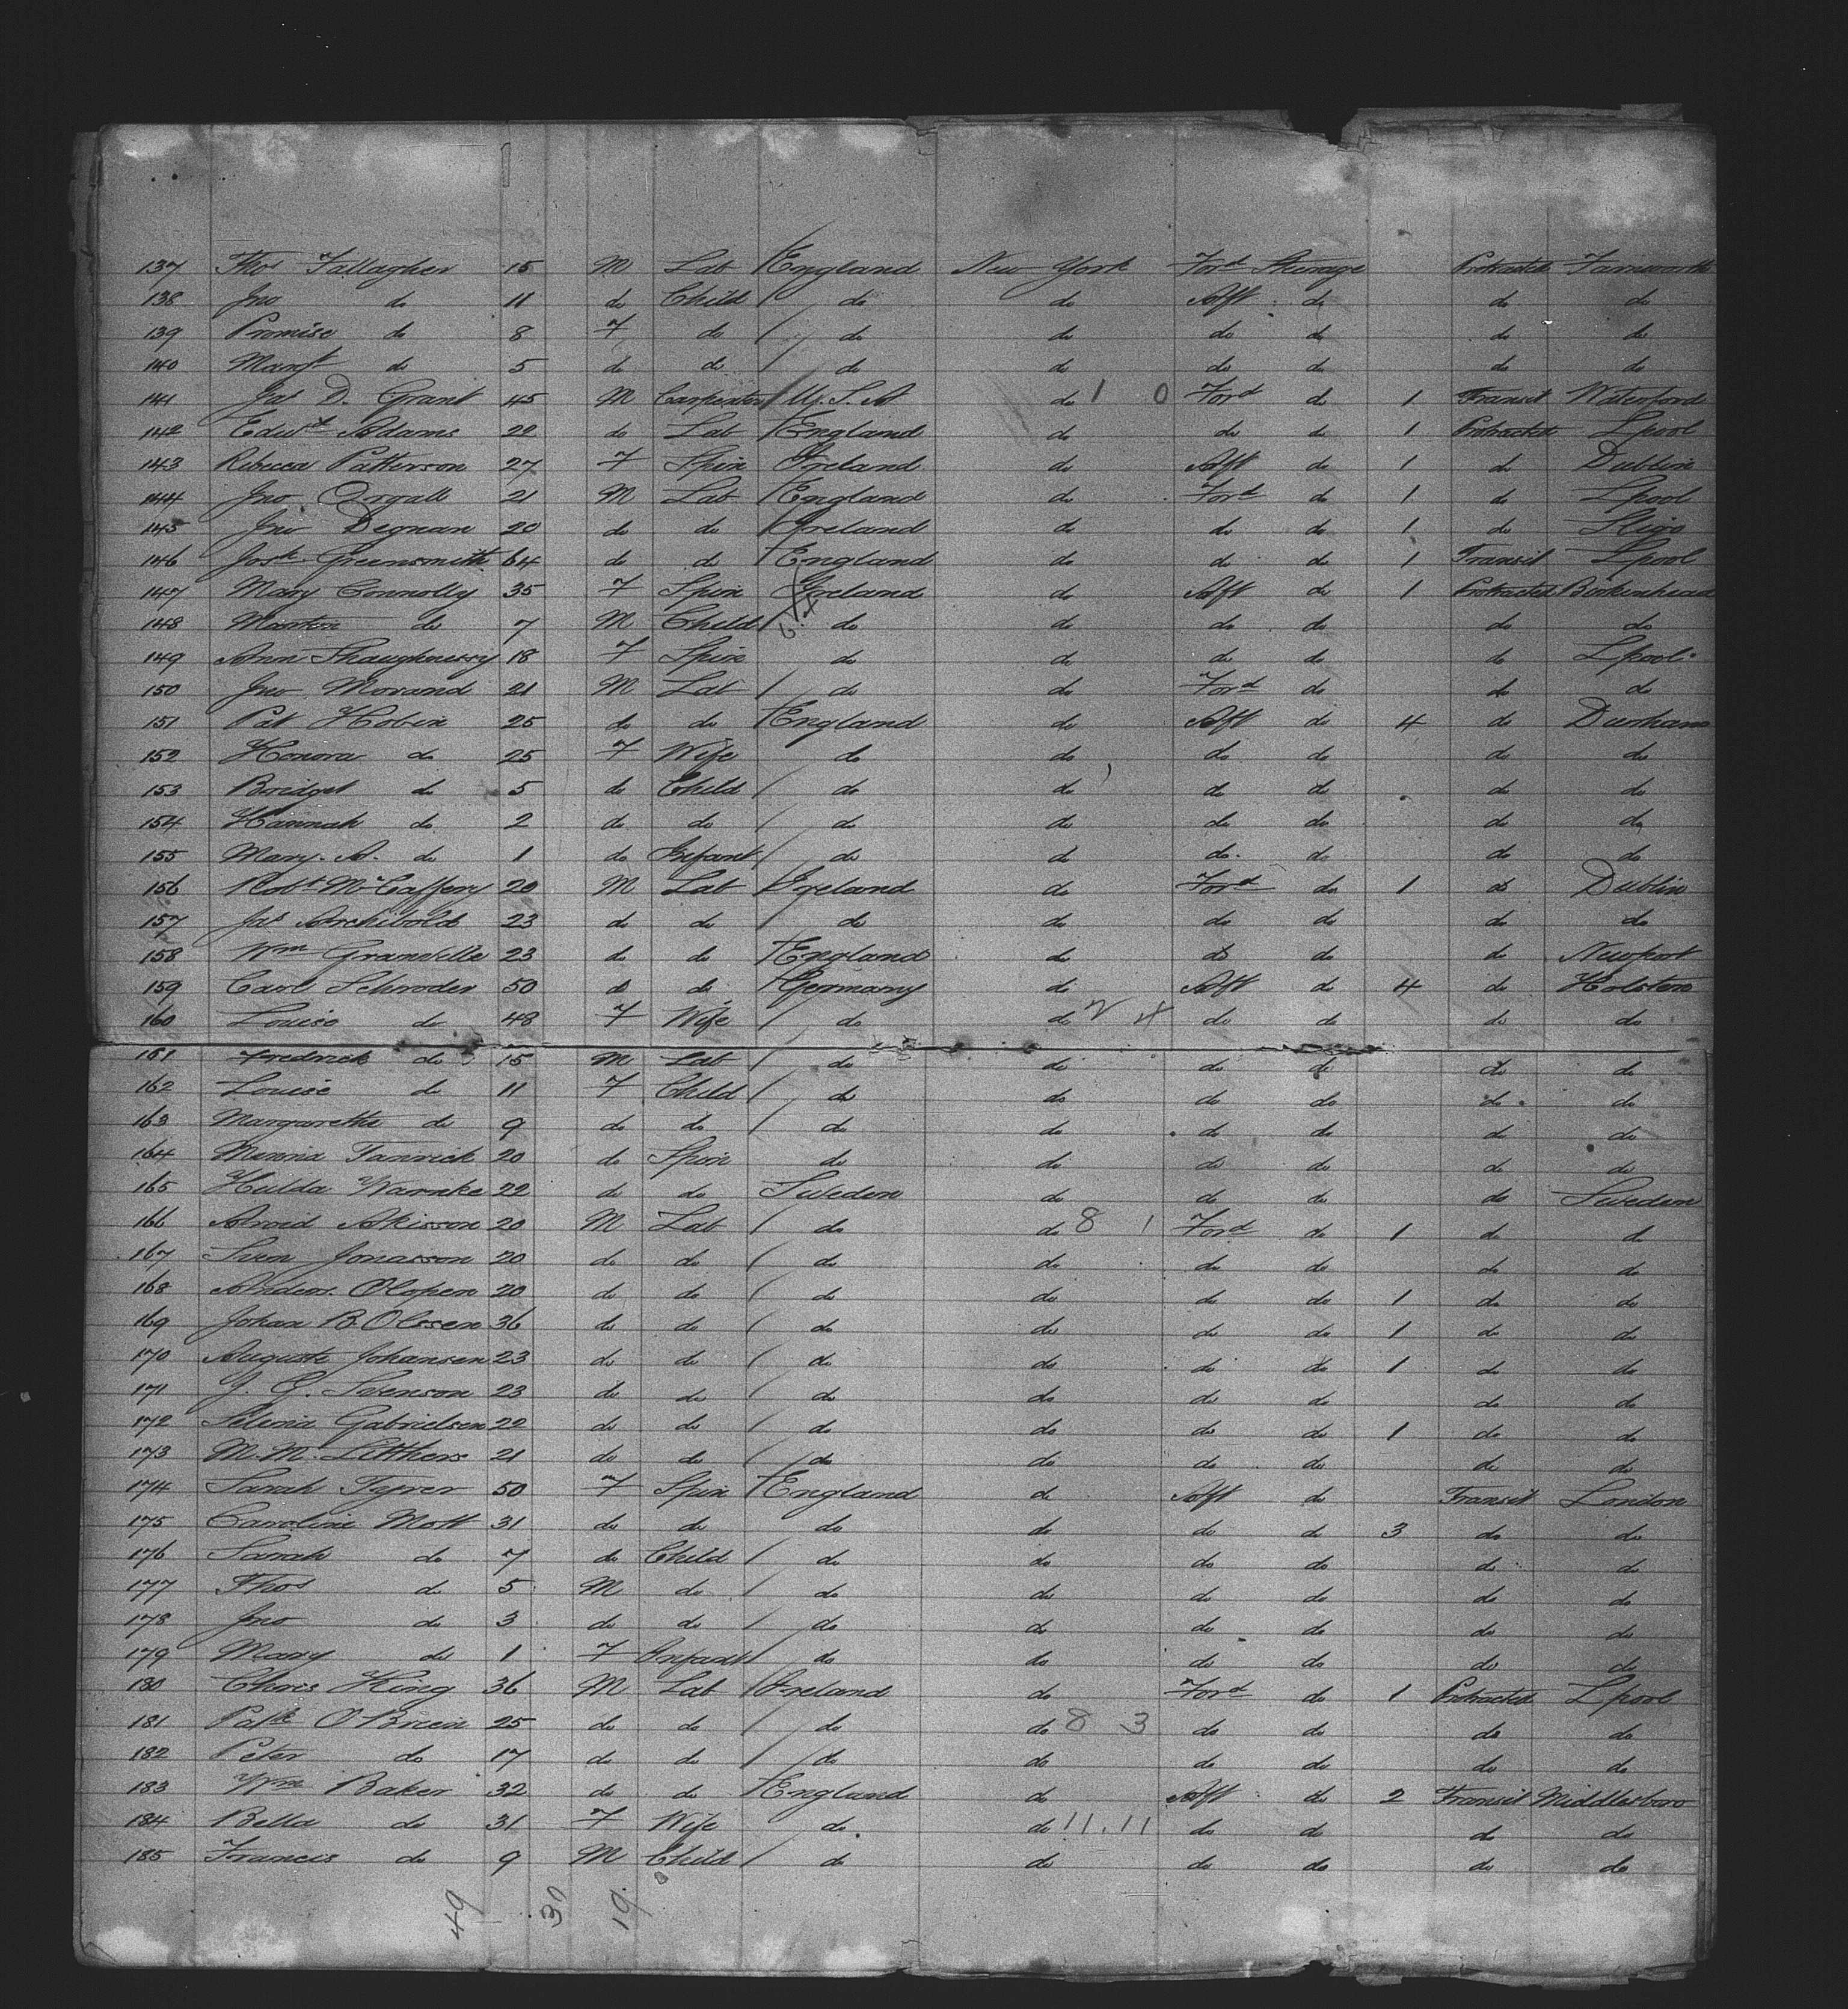 137 Thos Gallagher 15 M Lab England New York Ford Steerage Protracted Farnworth
138 Jno do 11 do Child do do Aft do do do
139 Promise do 8 F do do do do do do do
140 Margt do 5 do do do do do do do do
141 Jas D. Grant 45 M Carpenter U.S.A do 1 0 Ford do 1 Transit Waterford
142 Edwd Adams 22 do Lab England do do do 1 Protracted Lpool
143 Rebecca Patterson 27 F Spin Ireland do Aft do 1 do Dublin
144 Jno Orgall 21 M Lab England do Ford do 1 do Lpool
145 Jno Degnan 20 do do Ireland do do do 1 do Sligo
146 Josh Greensmith 64 do do England do do do 1 Transit Lpool
147 Mary Connolly 35 F Spin Ireland do Aft do 1 Protracted Birkenhead
148 Martin do 7 M Child do do do do do do
149 Ann Shaughnessy 18 F Spin do do do do do Lpool
150 Jno Morand 21 M Lab do do Ford do do do
151 Pat Hobin 25 do do England do Aft do 4 do Durham
152 Honora do 25 F Wife do do do do do do
153 Bridget do 5 do Child do do do do do do
154 Hannah do 2 do do do do do do do do
155 Mary A. do 1 do Infant do do do do do do
156 Robt McCaffery 20 M Lab Ireland do Ford do 1 do Dublin
157 Jas Archibold 23 do do do do do do do do
158 Wm Granville 23 do do England do do do do Newport
159 Carl Schroder 50 do do Germany do Aft do 4 do Holstein
160 Louise do 48 F Wife do do 2 4 do do do do
161 Fredrick do 15 M Lab do do do do do do
162 Louise do 11 F Child do do do do do do
163 Margarethe do 9 do do do do do do do do
164 Minna Tanrick 20 do Spin do do do do do do
165 Hulda Warnke 22 do do Sweden do do do do Sweden
166 Arvid Akisson 20 M Lab do do 8 1 Ford do 1 do do
167 Sven Jonasson 20 do do do do do do do do
168 Anders Olopen 20 do do do do do do 1 do do
169 Johan B. Olssen 36 do do do do do do 1 do do
170 Auguste Johansen 23 do do do do do do 1 do do
171 J. G. Svenson 23 do do do do do do do do
172 Selena Gabrielsen 22 do do do do do do 1 do do
173 M. M. Litthers 21 do do do do do do do do
174 Sarah Tyrer 50 F Spin England do Aft do Transit London
175 Caroline Mott 31 do do do do do do 3 do do
176 Sarah do 7 do Child do do do do do do
177 Thos do 5 M do do do do do do do
178 Jno do 3 do do do do do do do do
179 Mary do 1 F Infant do do do do do do
180 Chris King 36 M Lab Ireland do Ford do 1 Protracted Lpool
181 Patk O'Brien 25 do do do do 8 3 do do do do
182 Peter do 17 do do do do do do do do
183 Wm Baker 32 do do England do Aft do 2 Transit Middlesboro
184 Bella do 31 F Wife do do 11.11 do do do do
185 Francis do 9 M Child do do do do do do
49 30 19